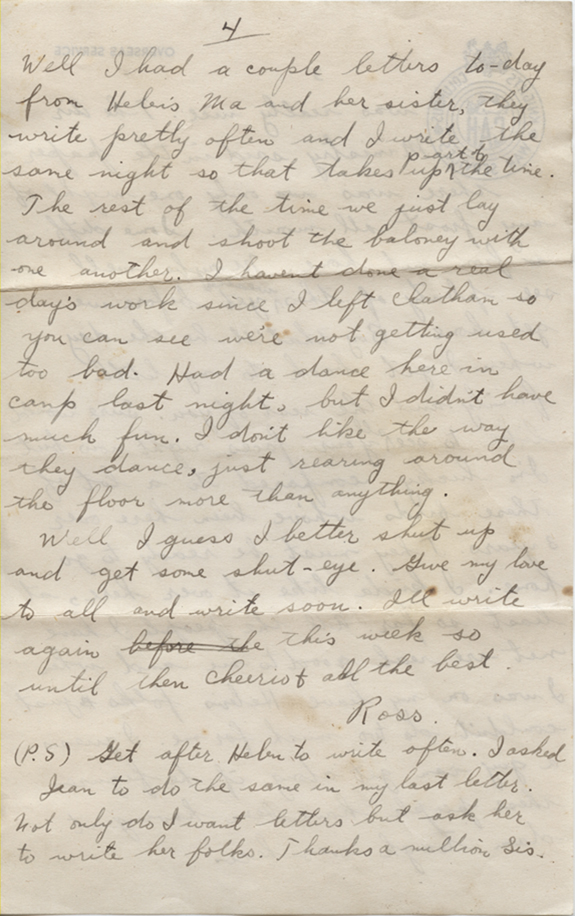 4
Well I had a couple letters to-day
from Helen's Ma and her sister, they
write pretty often and I write the
same night so that takes up part of the time.
The rest of the time we just lay
around and shoot the baloney with
one another. I havent done a real
day's work since I left Chatham so
you can see we're not getting used
too bad. Had a dance here in
camp last night, but I didn't have
much fun. I don't like the way
they dance, just rearing around
the floor more than anything.
Well I guess I better shut up
and get some shut-eye. Give my love
to all and write soon. I'll write
again before the this week so
until then cheerio & all the best.
Ross.
(P.S) Get after Helen to write often. I asked
Jean to do the same in my last letter.
Not only do I want letters but ask her
to write her folks. Thanks a million Sis.